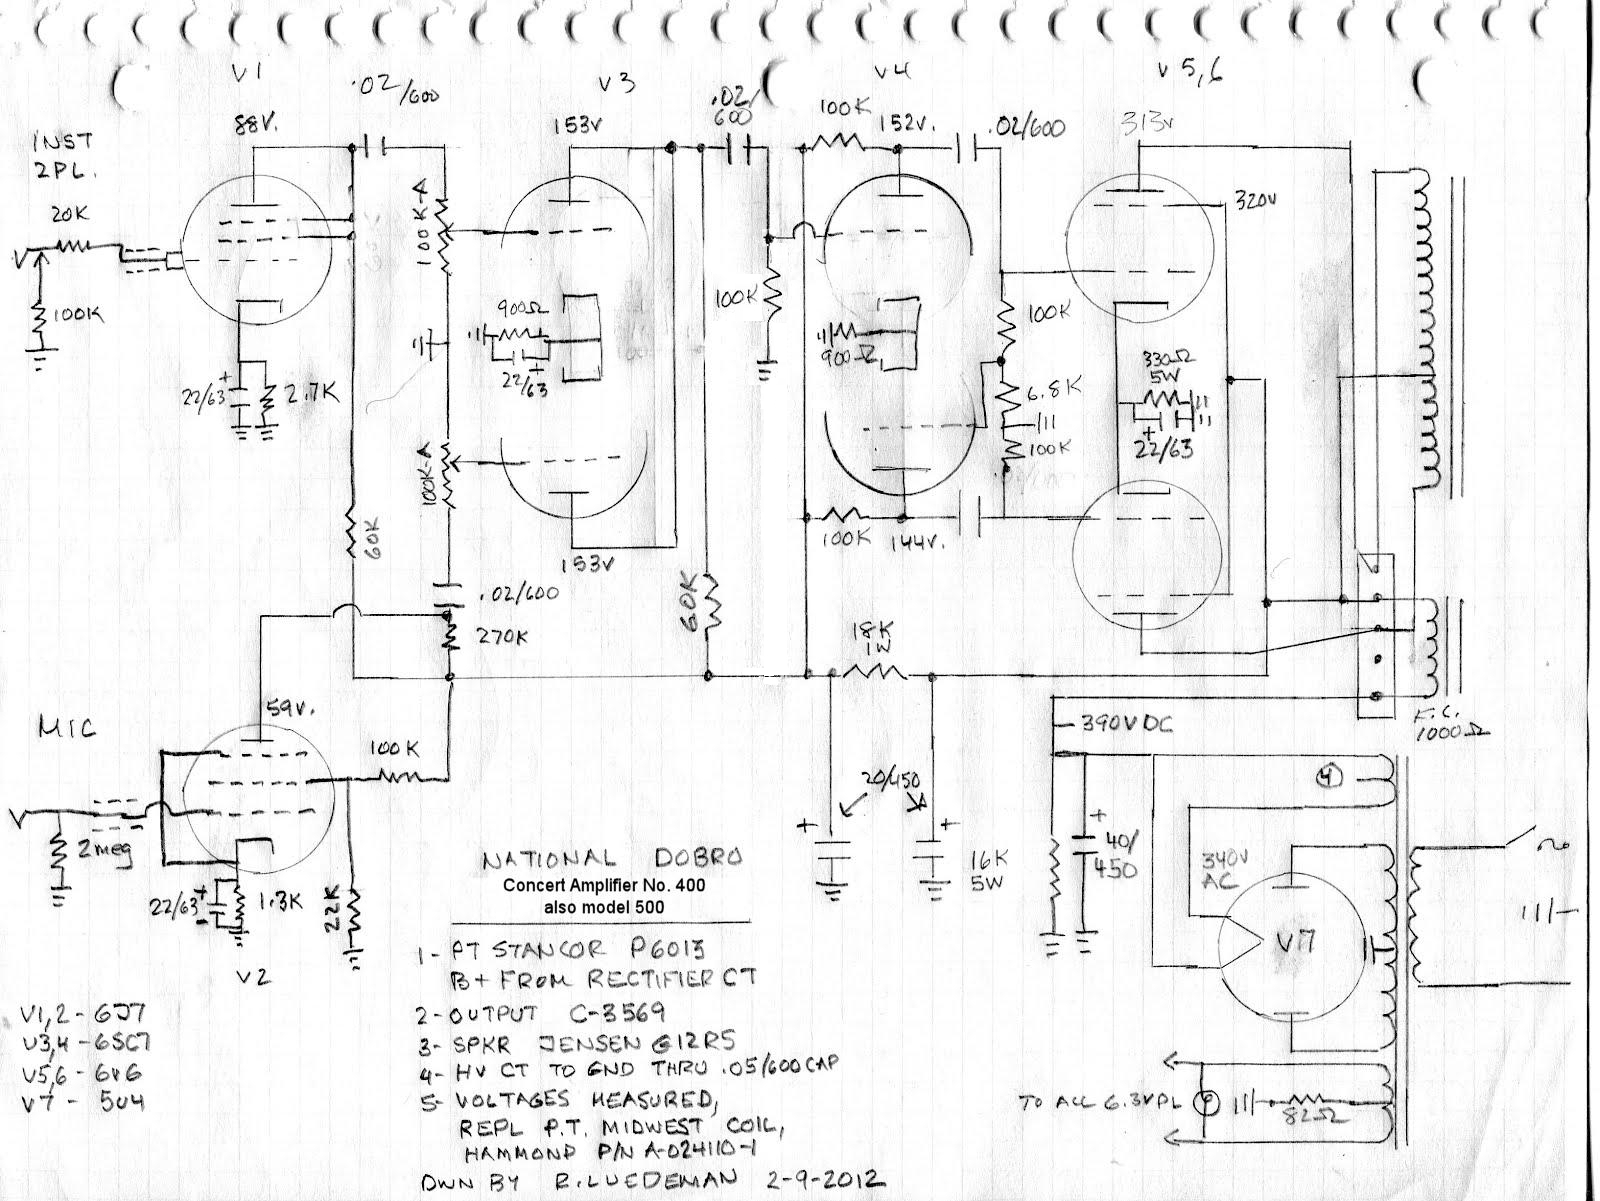 V1
.02/600
V3
.02/
600
V4
V 5,6
88V.
153V
100K
152V.
.02/600
313V
INST
2PL.
20K
100K-A
320V
100K
900Ω
100K
100K
22/63
2.7K
22/63
900Ω
6.8K
330Ω
5W
100K
22/63
100K-A
60K
100K
144V.
153V
.02/600
60K
270K
18K
1W
59V.
MIC
390VDC
F.C.
1000Ω
100K
20/450
4
2meg
40/
450
340V
AC
16K
5W
22/63
1.3K
22K
V7
V2
NATIONAL DOBRO
Concert Amplifier No. 400
also model 500
1- PT STANCOR P6013
B+ FROM RECTIFIER CT
2- OUTPUT C-3569
3- SPKR JENSEN G12R5
4- HV CT TO GND THRU .05/600 CAP
5- VOLTAGES MEASURED,
REPL P.T. MIDWEST COIL,
HAMMOND P/N A-024110-1
DWN BY R. LUEDEMAN 2-9-2012
V1,2 - 6J7
V3,4 - 6SC7
V5,6 - 6V6
V7 - 5U4
TO ALL 6.3V PL
82Ω